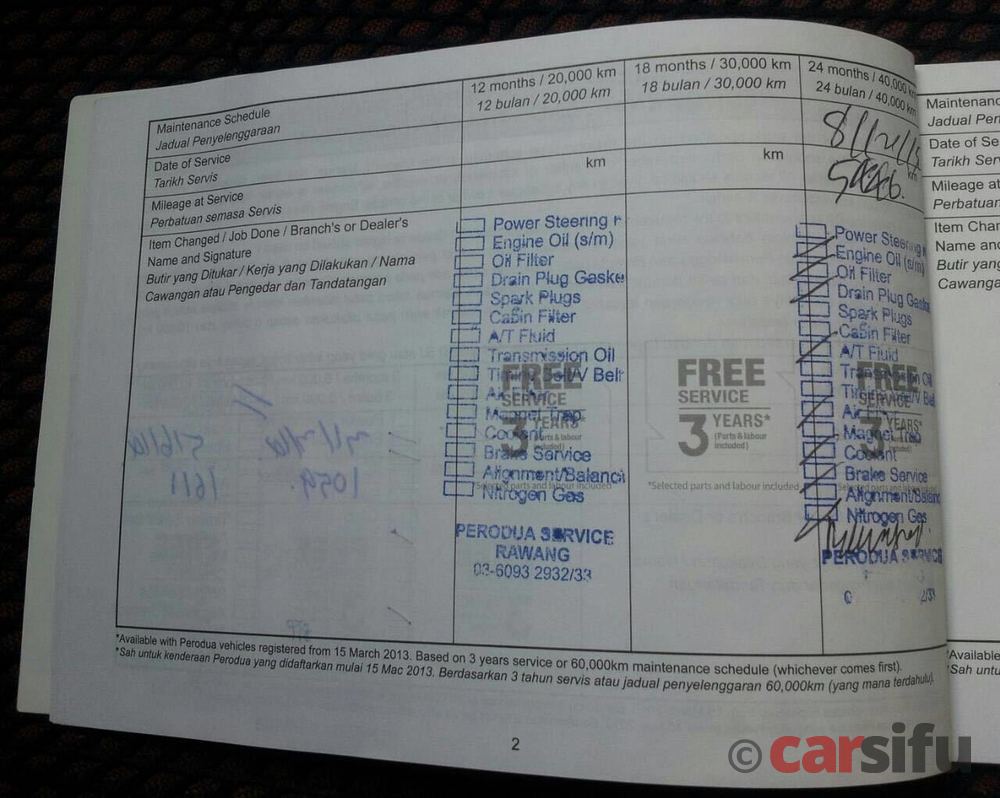 Maintenance Schedule
Jadual Penyelenggaraan
12 months / 20,000 km
12 bulan / 20,000 km
18 months / 30,000 km
18 bulan / 30,000 km
24 months / 40,000 km
24 bulan / 40,000 km
Date of Service
Tarikh Servis
Mileage at Service
Perbatuan semasa Servis
km
km
km
Item Changed / Job Done / Branch's or Dealer's
Name and Signature
Butir yang Ditukar / Kerja yang Dilakukan / Nama
Cawangan atau Pengedar dan Tandatangan
Power Steering
Engine Oil (s/m)
Oil Filter
Drain Plug Gaske
Spark Plugs
Cabin Filter
A/T Fluid
Transmission Oil
Timing Belt/V Belt
Magnet Trap
Coolant
Brake Service
Alignment/Balanci
Nitrogen Gas
PERODUA SERVICE
RAWANG
03-6093 2932/33
FREE
SERVICE
3 YEARS*
(Parts & labour
included)
*Selected parts and labour included
FREE
SERVICE
3 YEARS*
(Parts & labour
included)
*Selected parts and labour included
Power Steering
Engine Oil (s/m)
Oil Filter
Drain Plug Gaske
Spark Plugs
Cabin Filter
A/T Fluid
Transmission Oil
Magnet Trap
Coolant
Brake Service
Alignment/Balanc
Nitrogen Gas
PERODUA SERVICE
FREE
SERVICE
3 YEARS*
*Available with Perodua vehicles registered from 15 March 2013. Based on 3 years service or 60,000km maintenance schedule (whichever comes first).
*Sah untuk kenderaan Perodua yang didaftarkan mulai 15 Mac 2013. Berdasarkan 3 tahun servis atau jadual penyelenggaran 60,000km (yang mana terdahulu).
2
Maintenanc
Jadual Pen
Date of Se
Tarikh Serv
Mileage at
Perbatuan
Item Char
Name and
Butir yang
Cawanga
*Available
*Sah untu
© carsifu